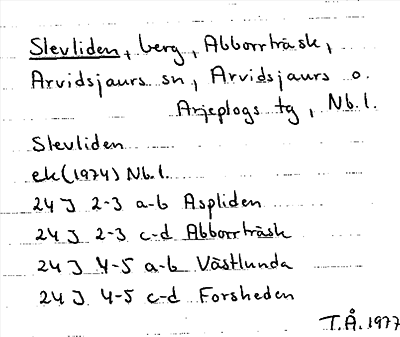 Slevliden, berg, Abborrträsk,
Arvidsjaurs sn, Arvidsjaurs o.
Arjeplogs tg, Nb.l.
Slevliden
ek (1974) Nb.l.
24 J 2-3 a-b Aspliden
24 J 2-3 c-d Abborrträsk
24 J 4-5 a-b Västlunda
24 J 4-5 c-d Forsheden
T.Å. 1977